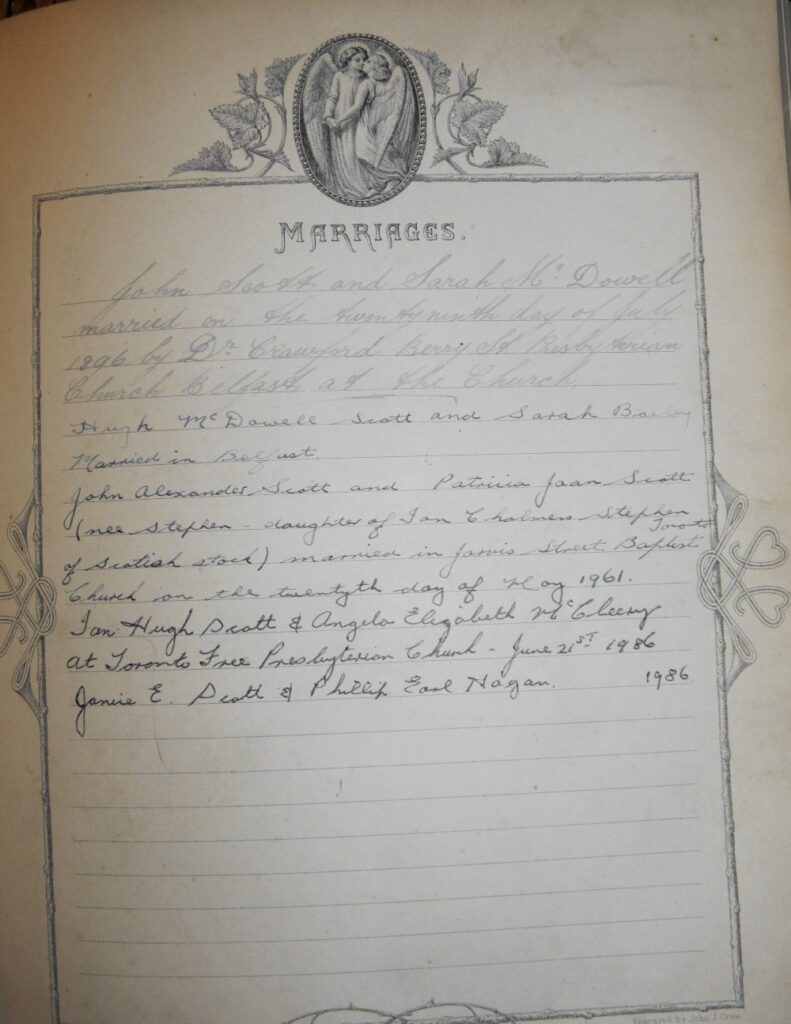 MARRIAGES.
John Scott and Sarah Mc Dowell
married on the twentyninth day of July
1896 by Dr Crawford Berry St Presbyterian
Church Belfast at the Church.
Hugh McDowell Scott and Sarah
Married in Belfast.
John Alexander Scott and Patricia Joan Scott
(nee Stephen - daughter of Ian Chalmers Stephen
of Scotish stock) married in Jarvis Street Baptist Toronto
Church on the twentyth day of May 1961.
Ian Hugh Scott & Angela Elizabeth McCleery
at Toronto Free Presbyterian Church - June 21ST 1986
Janie E. Scott & Phillip Earl Hagan. 1986
Engraved by John J Crew